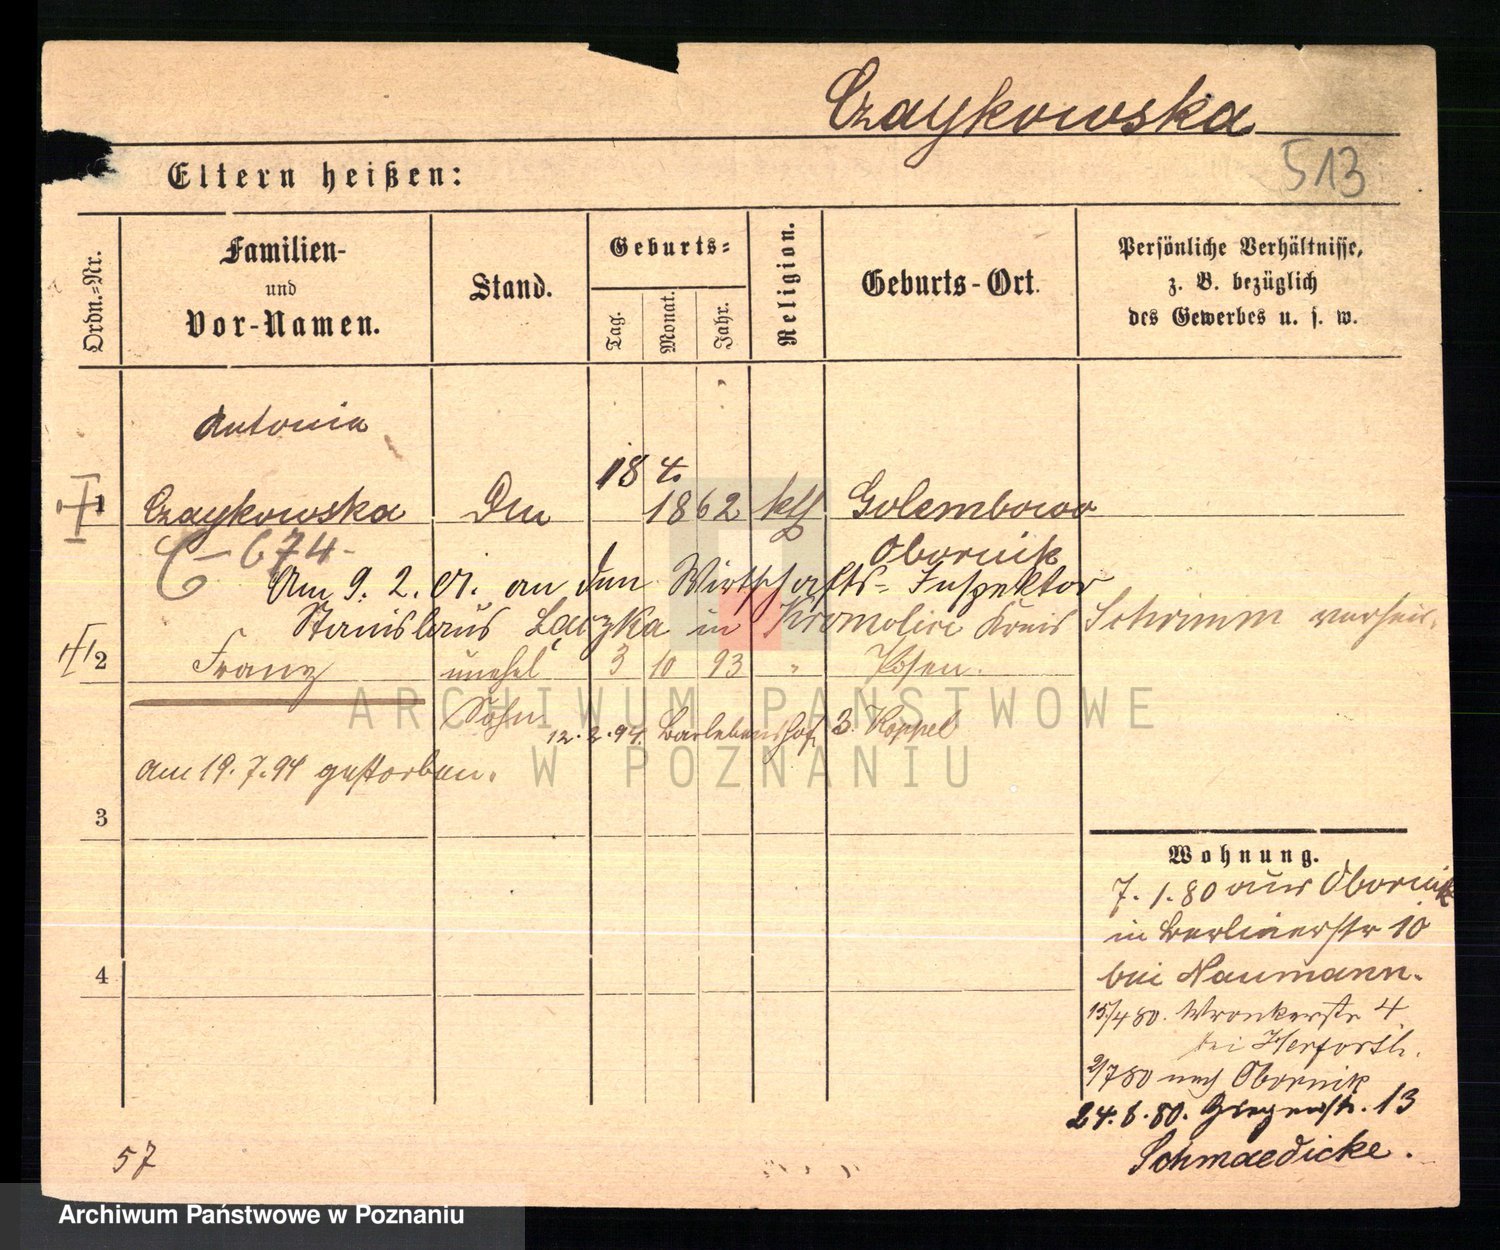 Czaykowska
513
Eltern heißen:
Ordn.-Nr.
Familien-
und
Vor-Namen.
Stand.
Geburts-
Tag.
Monat.
Jahr.
Religion.
Geburts-Ort.
Persönliche Verhältnisse,
z. B. bezüglich
des Gewerbes u. s. w.
Antonia
18 4.
1 Czaykowska 1862 kth Golembowo
C-674- Obornik
Am 9. 2. 01. an den Wirthschafts-Inspektor
Stanislaus Łączka in Kromolice Kreis Schrimm verheir.
2 Franz unehel 3 10 93 " Posen.
Sohn
12.2.94. Barlebenshof 3. Koppel
am 19.7.94 gestorben.
3
Wohnung.
7. 1. 80 aus Obornik
in Berlinerstr 10
bei Naumann.
4
15/4 80. Wronkerstr 4
bei Herforth.
2/7 80 nach Obornik
24. 8. 80. 13
Schmaedicke.
57
ARCHIWUM PAŃSTWOWE
W POZNANIU
Archiwum Państwowe w Poznaniu